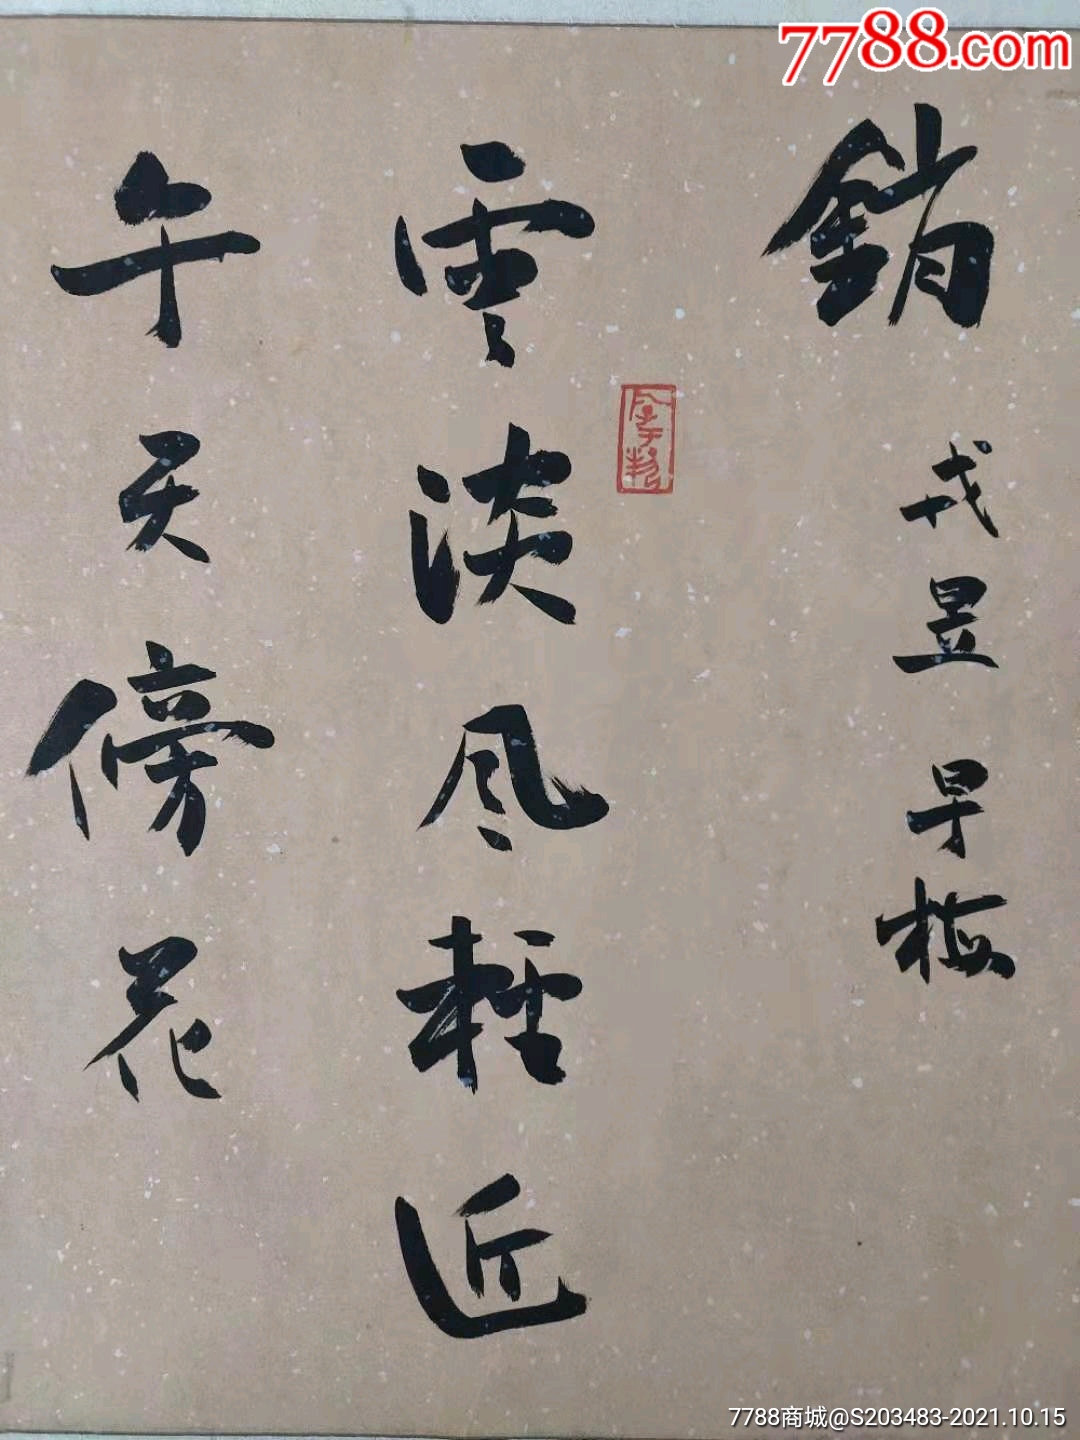 7788.com
銷
戎昱 早梅
雲淡风輕近
午天傍花
7788商城@S203483-2021.10.15